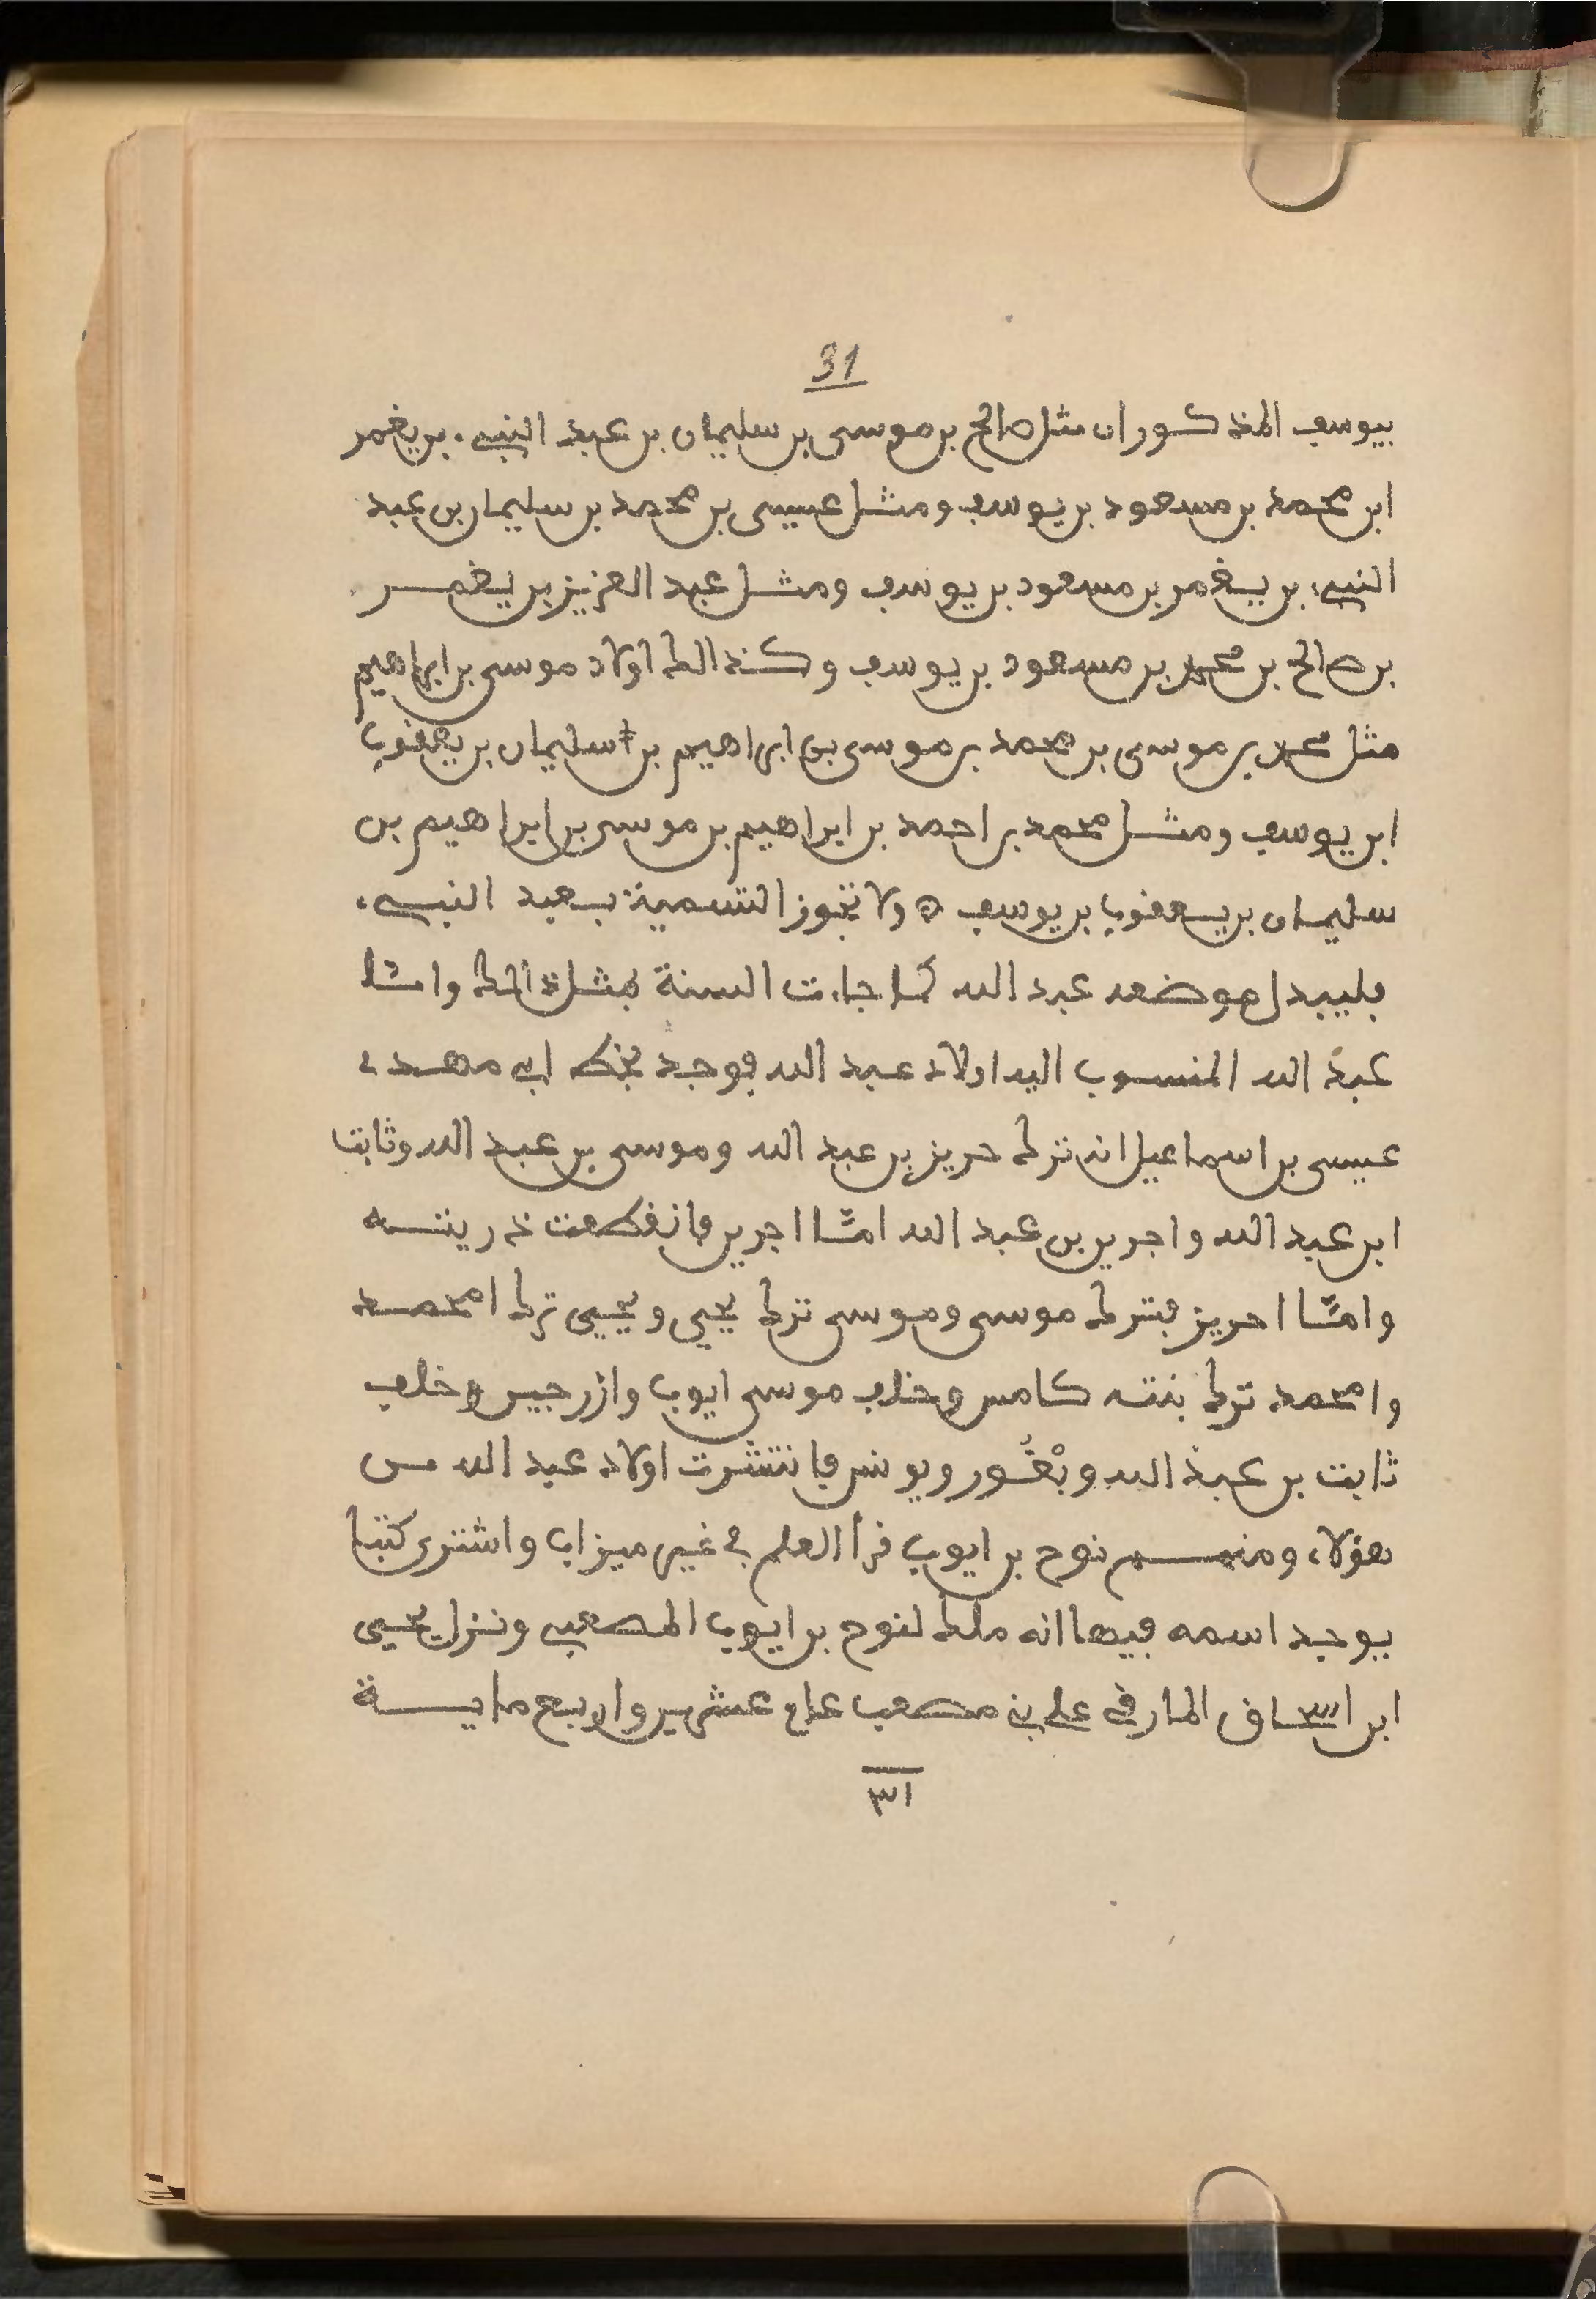 31
بيوسف المذكوران مثل صالح بن موسى بن سليمان بن عبد النبيء بن يغمر
ابن محمد بن مسعود بن يوسف ومثل عيسى بن محمد بن سليمان بن عبد
النبيء بن يغمر بن مسعود بن يوسف ومثل عبد العزيز بن يغمر
بن صالح بن محمد بن مسعود بن يوسف وكذالك اولاد موسى بن ابراهيم
مثل محمد بن موسى بن محمد بن موسى بن ابراهيم بن سليمان بن يعقوب
ابن يوسف ومثل محمد بن احمد بن ابراهيم بن موسى بن ابراهيم بن
سليمان بن يعقوب بن يوسف ولا تجوز التسمية بعبد النبيء
فليبدل موضعه عبد الله كما جاءت السنة بمثل ذالك وامّا
عبد الله المنسوب اليه اولاد عبد الله فوجد بخط ابي مهدي
عيسى بن اسماعيل انه ترك حريز بن عبد الله وموسى بن عبد الله وثابت
ابن عبد الله واجرير بن عبد الله امّا اجرير فانقطعت ذريته
وامّا احريز فترك موسى وموسى ترك يحيى ويحيى ترك امحمد
وامحمد ترك بنته كامس وخلف موسى ايوب وازرجين وخلف
ثابت بن عبد الله وبْغُور ويونس فانتشرت اولاد عبد الله من
هؤلاء ومنهم نوح بن ايوب قرأ العلم في غير ميزاب واشترى كتبا
يوجد اسمه فيها انه ملك لنوح بن ايوب المصعبي ونزل يحيى
ابن اسحاق المار في علي بني مصعب عام عشرين واربع ماية
٣١